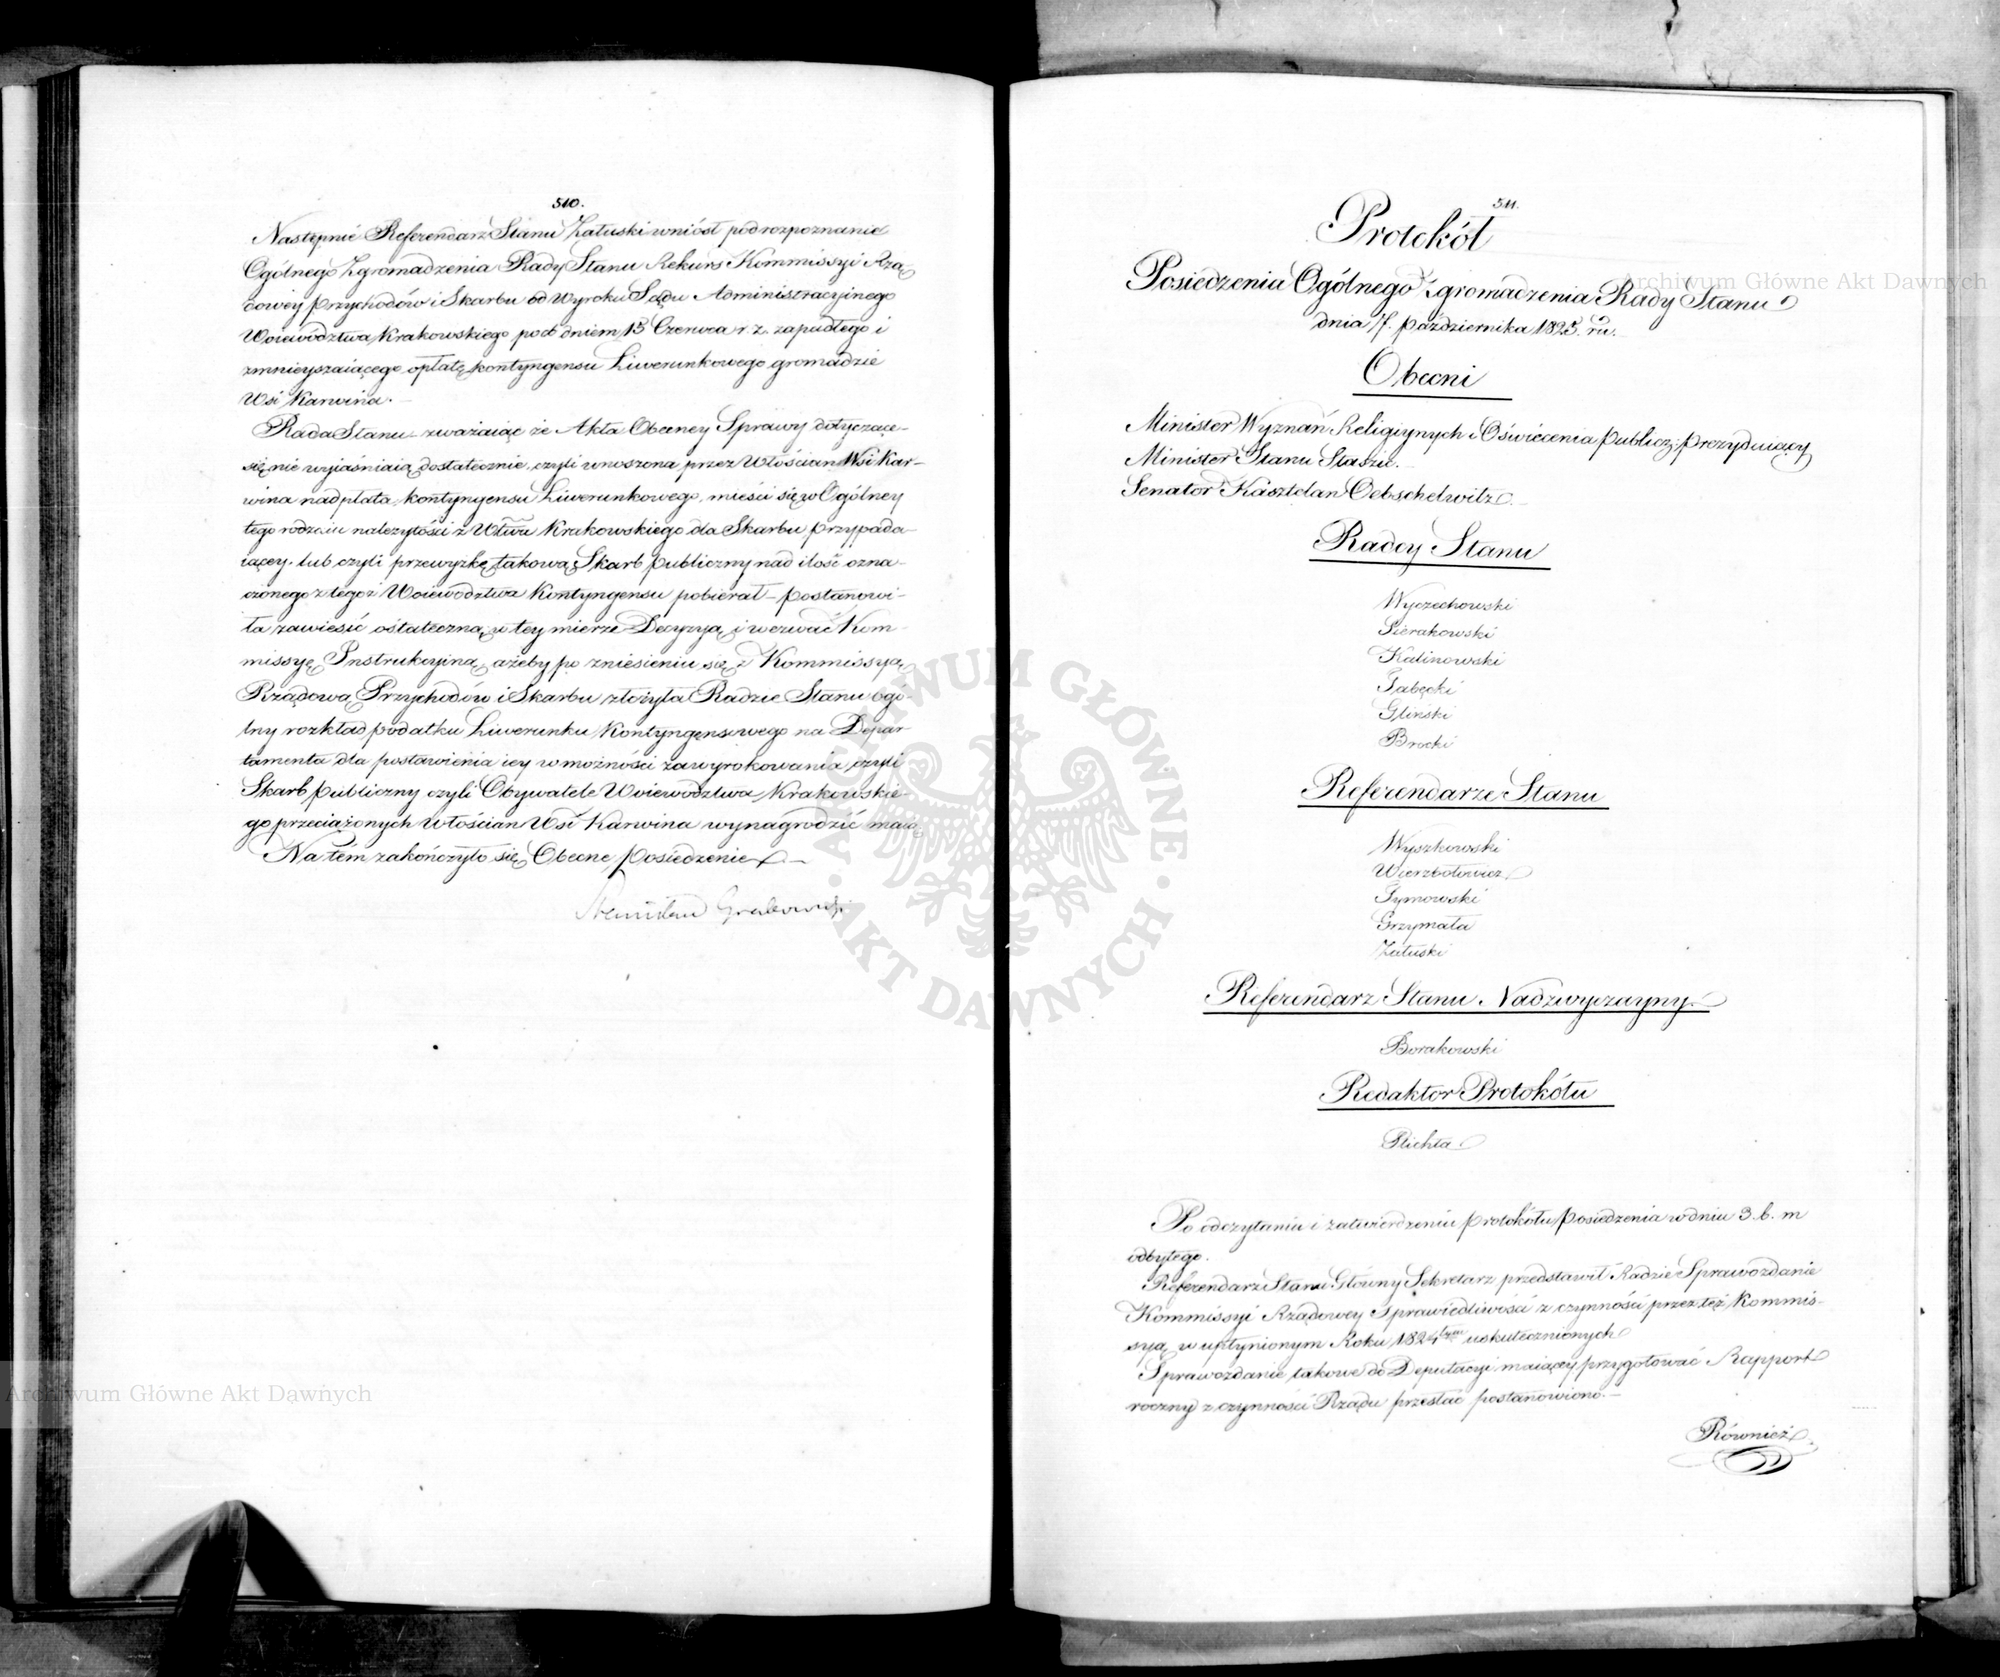 510.
Następnie Referendarz Stanu Załuski wniósł pod rozpoznanie
Ogólnego Zgromadzenia Rady Stanu Rekurs Kommissyi Rzą
dowey Przychodów i Skarbu od Wyroku Sądu Administracyinego
Woiewództwa Krakowskiego pod dniem 13 Czerwca r. z. zapadłego i
zmnieyszaiącego opłatę kontyngensu Liwerunkowego gromadzie
Wsi Karwina. —
Rada Stanu zważaiąc że Akta Obecney Sprawy dotyczące-
się nie wyiaśniaią dostatecznie, czyli wnoszona przez Włościan Wsi Kar-
wina nadpłata kontyngensu Liwerunkowego, mieści się w Ogólney
tego rodzaiu należytości z Wtwa Krakowskiego dla Skarbu przypada-
iącey. lub czyli przewyżkę takową Skarb publiczny nad ilość ozna-
czonego z tegoż Woiewództwa Kontyngensu pobierał – postanowi-
ła zawiesić ostateczną w tey mierze Decyzyą i wezwać Kom-
missyę Instrukcyiną, ażeby po zniesieniu się z Kommissyą
Rządową Przychodów i Skarbu złożyła Radzie Stanu ogó-
lny rozkład podatku Liwerunku Kontyngensowego na Depar-
tamenta dla postawienia iey w możności zawyrokowania czyli
Skarb publiczny czyli Obywatele Woiewództwa Krakowskie-
go przeciążonych Włościan Wsi Karwina wynagrodzić maią
Na tém zakończyło się Obecne posiedzenie —
Stanisław Grabowski
511.
Protokół
Posiedzenia Ogólnego Zgromadzenia Rady Stanu
dnia 7. października 1825. ru.
Obecni
Minister Wyznań Religiynych i Oświecenia publicz: prezyduiący
Minister Stanu Staszic.
Senator Kasztelan Oebschelwitz.
Radcy Stanu
Wyczechowski
Sierakowski
Kalinowski
Gliński
Brocki
Referendarze Stanu
Wyszkowski
Wierzbołowicz
Tymowski
Grzymała
Załuski
Referendarz Stanu Nadzwyczayny.
Borakowski
Redaktor Protokółu
Plichta
Po odczytaniu i zatwierdzeniu protokółu posiedzenia w dniu 3. b. m
odbytego.
Referendarz Stanu Główny Sekretarz przedstawił Radzie Sprawozdanie
Kommissyi Rządowey Sprawiedliwości z czynności przez tęż Kommis-
syą w upłynionym Roku 1824tym uskutecznionych
Sprawozdanie takowe do Deputacyi maiącey przygotować Rapport
roczny z czynności Rządu przesłać postanowiono. —
Również
Archiwum Główne Akt Dawnych
Archiwum Główne Akt Dawnych
ARCHIWUM GŁÓWNE · AKT DAWNYCH ·